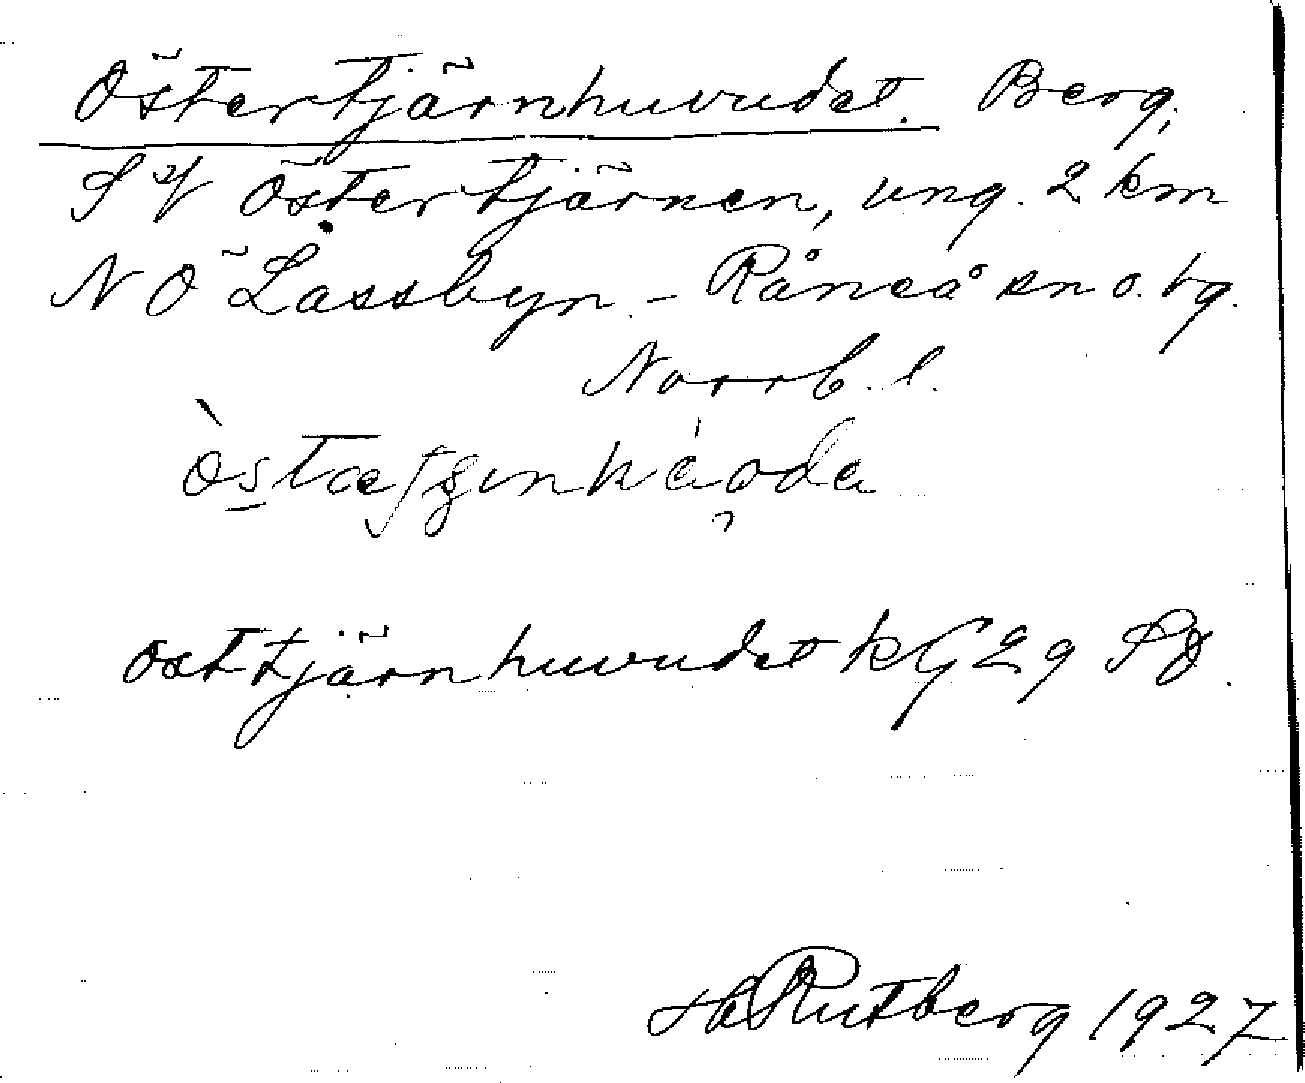 Östertjärnhuvudet. Berg,
S Östertjärnen, ung. 2 km
NÖ Lassbyn - Råneå sn o. tg.
Norrb. l.
Osttjärnhuvudet kG 29 SO.
H Rutberg 1927